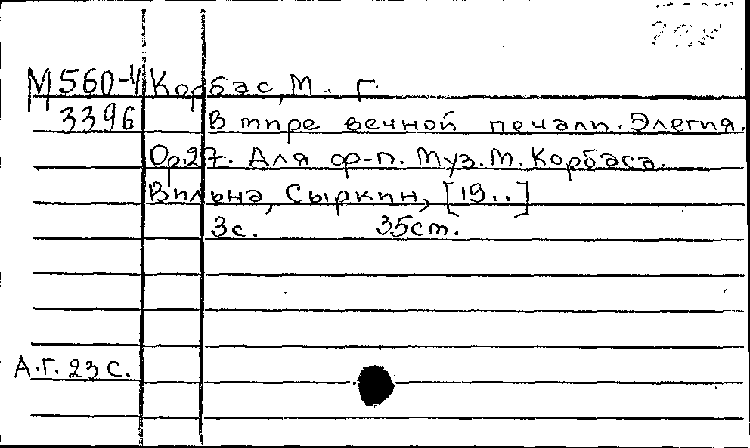 М560-4 Корбас, М. Г.
3396 В мире вечной печали. Элегия.
Op.27. Для ф-п. Муз. М. Корбаса.
Вильна, Сыркин, [19..]
3с. 35cm.
А.Г. 23 с.